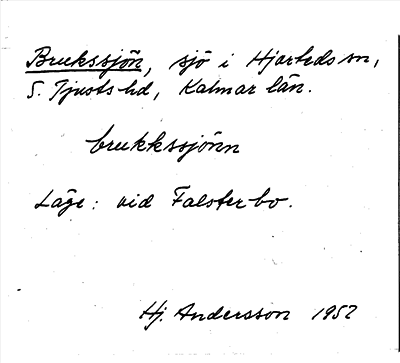 Brukssjön, sjö i Hjorteds sn,
S. Tjusts hd, Kalmar län.
brukkssjönn
Läge: vid Falsterbo.
Hj. Andersson 1952